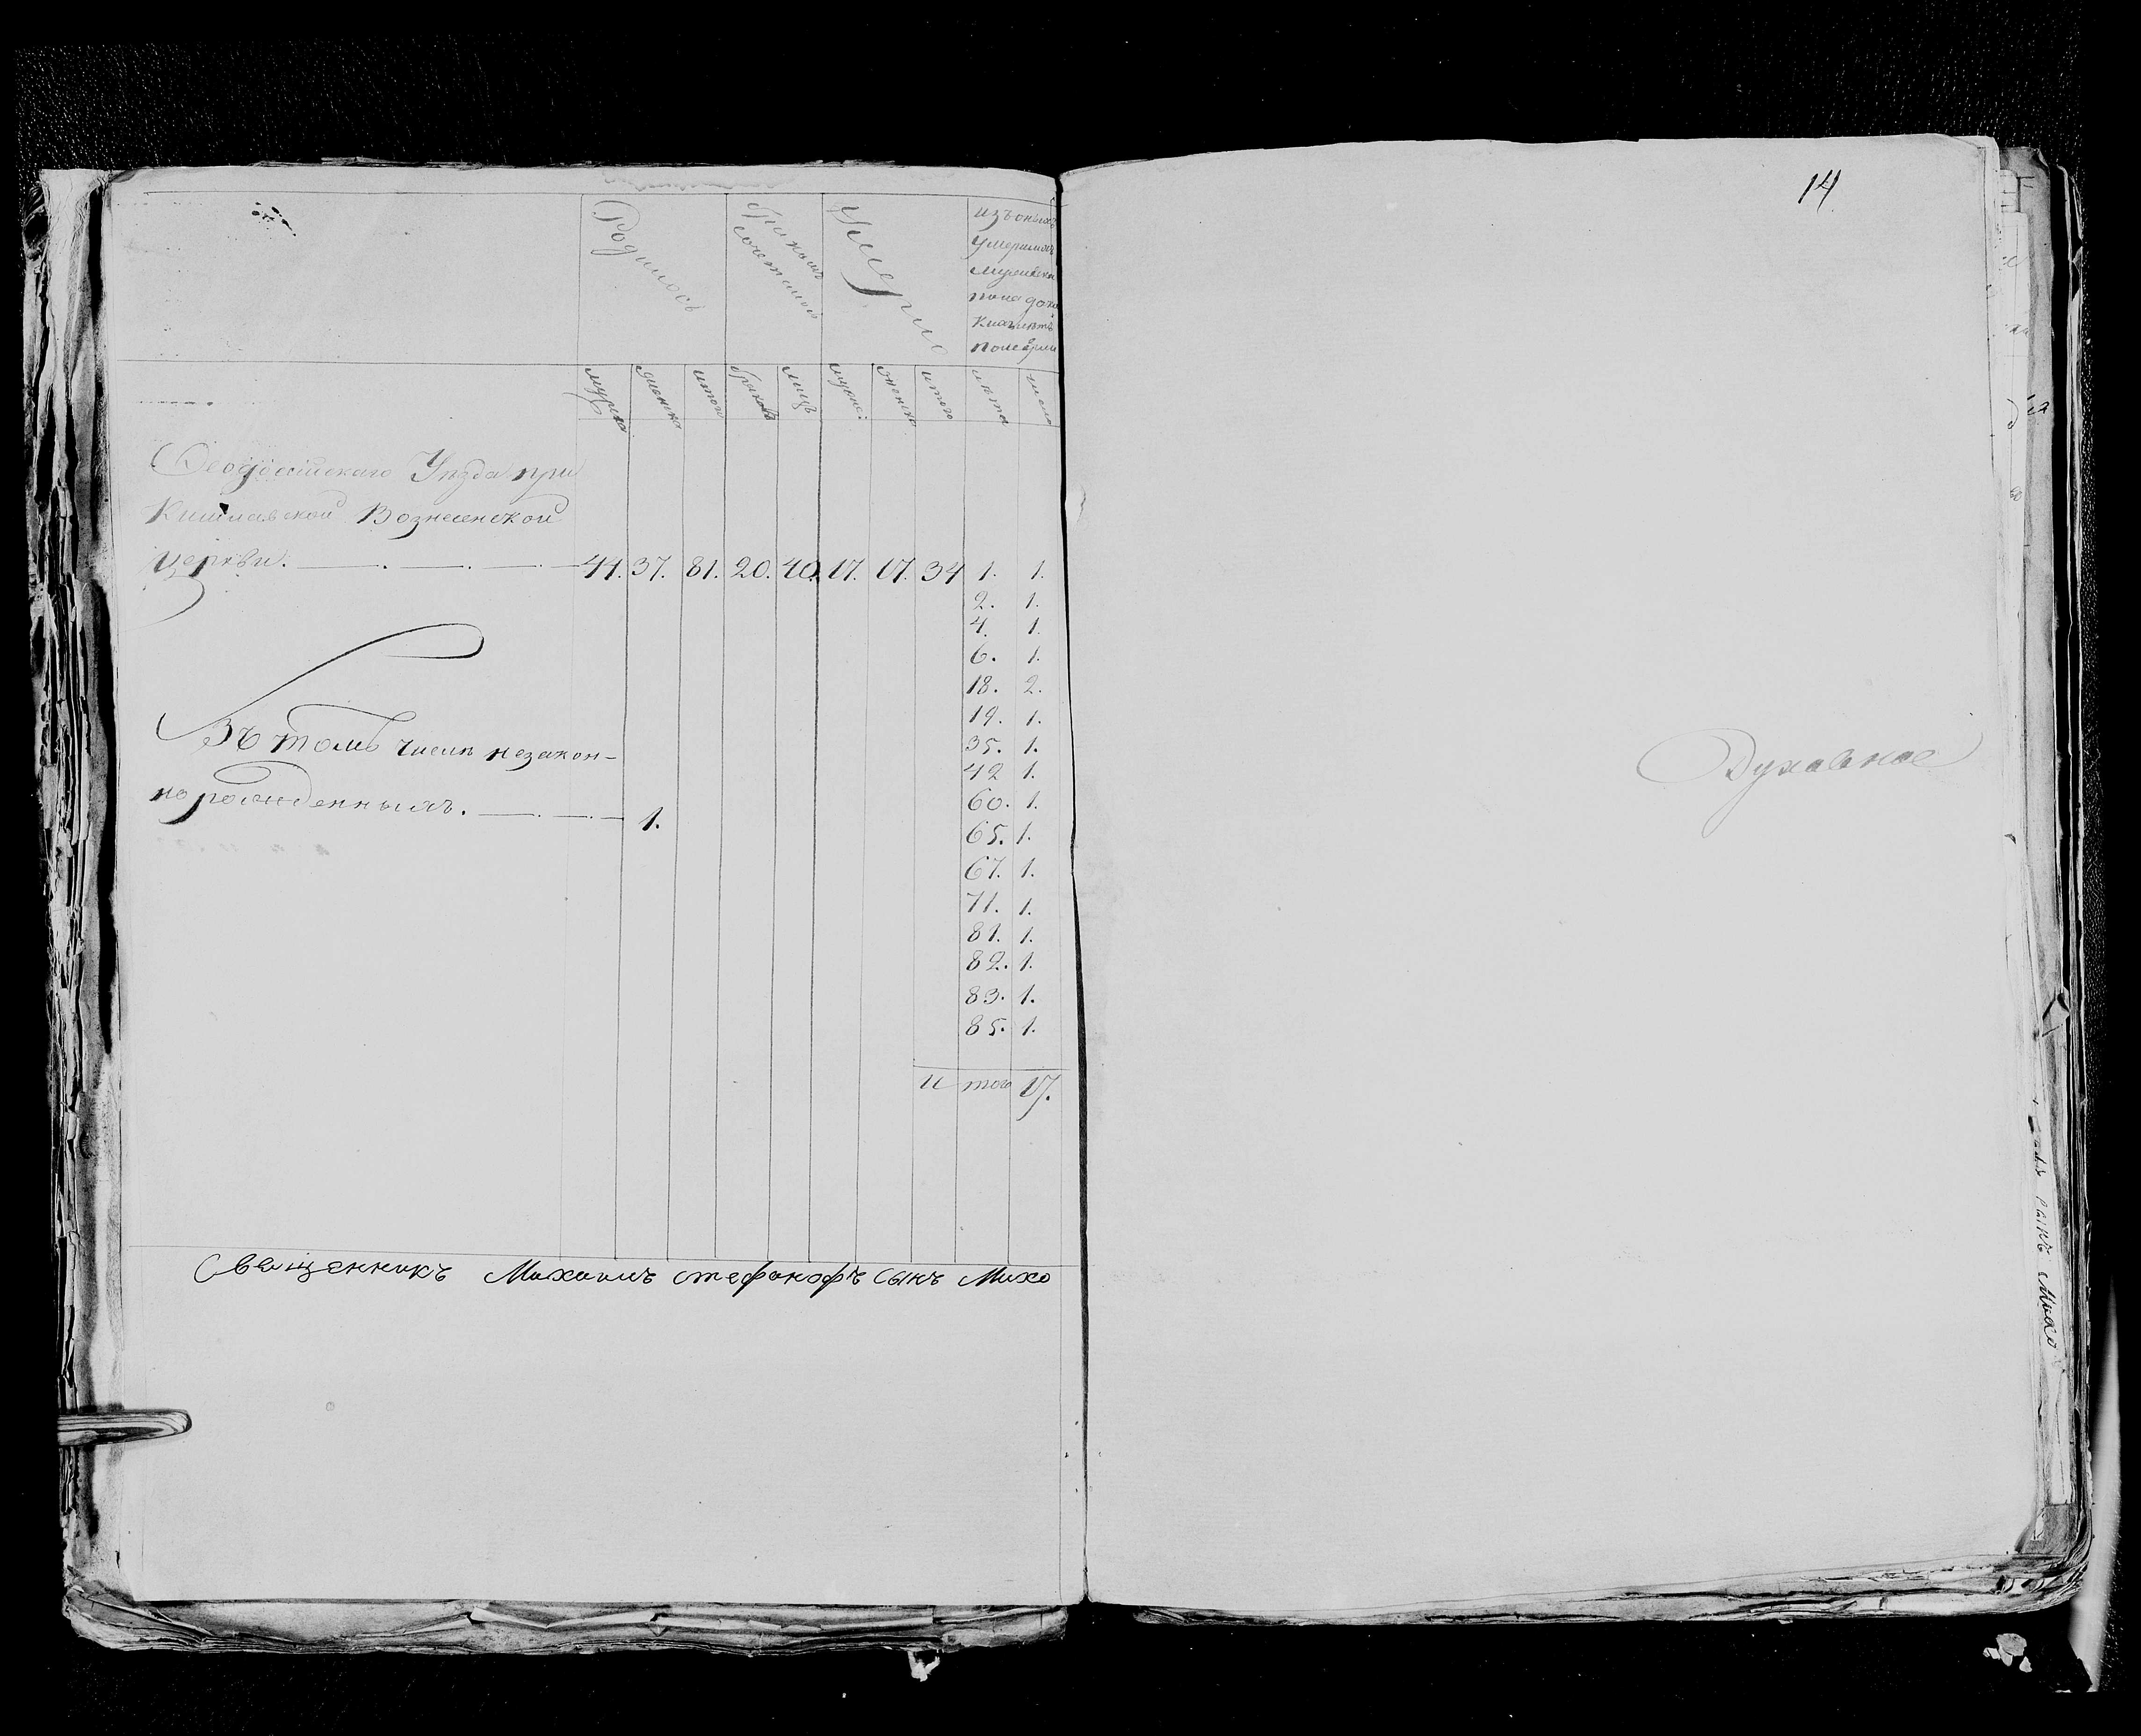 Родилось
бракомъ
сочетано
Умерло
изъ оныхъ
умершихъ
мужеска
пола
мужеска
женска
итого
браковъ
лицъ
мужес:
женска
итого
лета
число
Ѳеодосійскаго Уезда при
Кишлавской Вознесенской
церкви. 44. 37. 81. 20. 40. 17. 17. 34 1. 1.
2. 1.
4. 1.
6. 1.
18. 2.
19. 1.
35. 1.
42 1.
60. 1.
65. 1.
67. 1.
71. 1.
81. 1.
82. 1.
83. 1.
85. 1.
итого 17.
Въ томъ числе незакон-
норожденныхъ. 1.
Священникъ Михаилъ стефанофъ сынъ Михо
14
Духовное